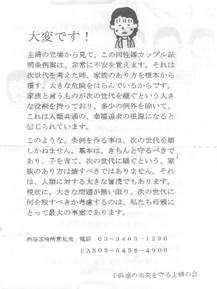 大変です！
主婦の立場から見て、この同性婚カップル証
明条例案は、非常に不安を覚えます。それは
次世代を考えた時、家族のあり方を根本から
壊す、大きな危険をはらんでいるからです。
家族と言うものが次の世代を継ぐという大き
な役割を持っており、多少の例外を除いて、
これは人類共通の、幸福追求の根源になると
信じられています。
このような、条例を作る事は、次の世代を壊
しかねません。基本は、きちんと守るべきで
あり、子を育て、次の世代に継ぐという、家
族のあり方は壊すべきではありません。それ
は、人類に対する大きな冒涜でもあります。
現状に、大きな問題が無い限り、次の世代に
何を残すべきか考慮するのは、私たち母親に
とって最大の事案であります。
渋谷区役所 電話 03-3463-1290
FAX03-5458-4900
子供達の未来を守る主婦の会